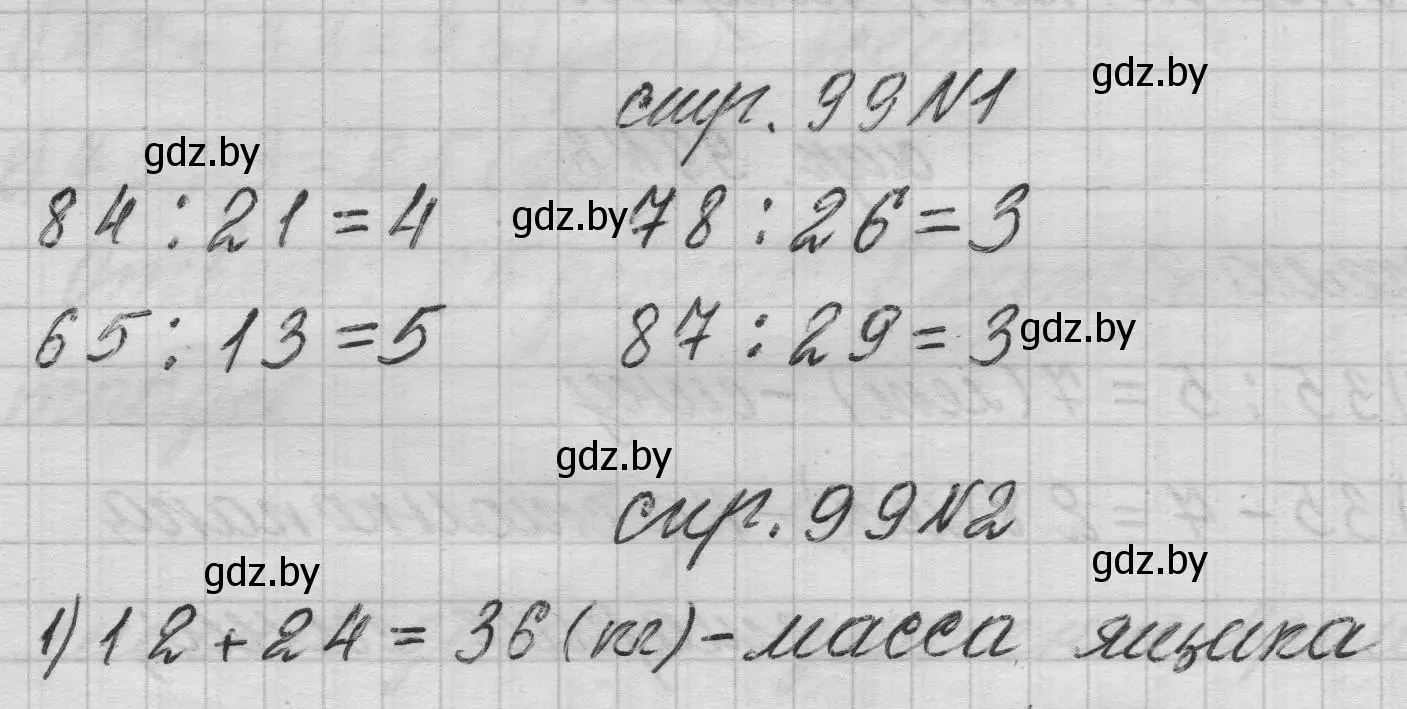 стр. 99 N1 gdz.by
gdz.by
84 : 21 = 4 gdz.by 78 : 26 = 3
65 : 13 = 5 87 : 29 = 3 gdz.by
gdz.by
стр. 99 N2
gdz.by gdz.by
1) 12 + 24 = 36 (кг) - масса ящика